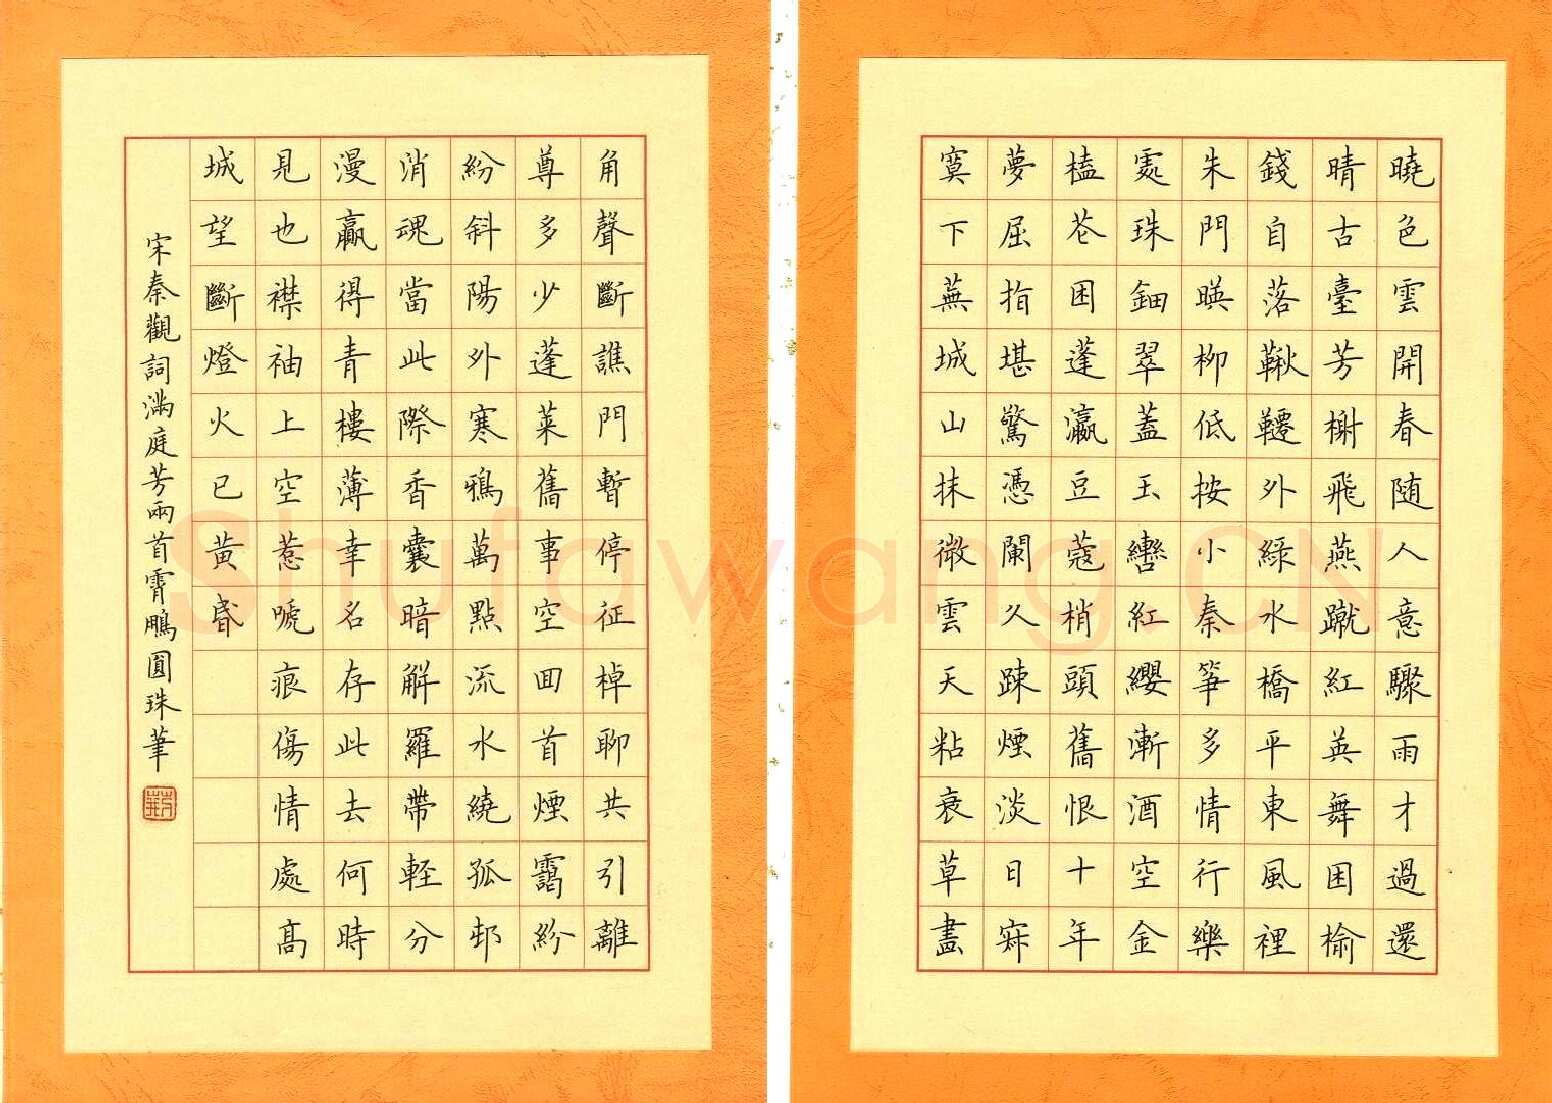 曉色雲開春随人意驟雨才過還
晴古臺芳榭飛燕蹴紅英舞困榆
錢自落鞦韆外緑水橋平東風裡
朱門暎柳低按小秦箏多情行樂
處珠鈿翠蓋玉轡紅纓漸酒空金
榼花困蓬瀛豆蔻梢頭舊恨十年
夢屈指堪驚憑闌久踈煙淡日寂
寞下蕪城山抹微雲天粘衰草畫
角聲斷譙門暫停征棹聊共引離
尊多少蓬萊舊事空回首煙靄紛
紛斜陽外寒鴉萬點流水繞孤邨
消魂當此際香囊暗解羅帶軽分
漫贏得青樓薄幸名存此去何時
見也襟袖上空惹嗁痕傷情處髙
城望斷燈火已黃昏
宋秦觀詞滿庭芳兩首霄鵬圓珠筆
Shufawang.CN